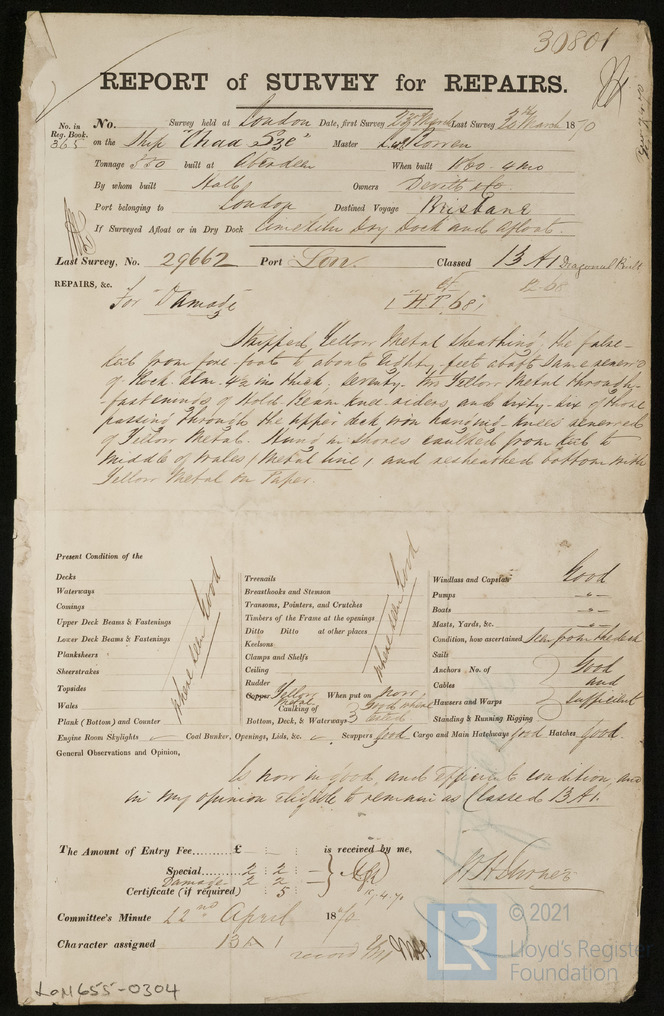 30801
REPORT of SURVEY for REPAIRS.
No. in Reg. Book. 365
No. Survey held at London Date, first Survey Last Survey March 1870
on the Ship "Chaa Sze" Master
Tonnage 550 built at Aberdeen When built 1860 - 4 mo
By whom built Hall Owners Devitt & Co
Port belonging to London Destined Voyage Brisbane
If Surveyed Afloat or in Dry Dock Limekiln Dry Dock and Afloat.
Last Survey, No. 29662 Port Lon. Classed 13 A1 Diagonal Built
REPAIRS, &c.
For "Damage"
Stripped Yellow Metal sheathing, the false-
keel from fore-foot to about Eighty feet abaft Same renewed
of Rock Elm 4½ ins thick, Seventy- Yellow Metal through-
fastenings of Hold Beam knee-riders, and sixty-six of those
passing through the upper deck iron hanging-knees renewed
of Yellow Metal. Hung in shores caulked from keel to
Middle of Wales (Metal line) and resheathed bottom with
Yellow Metal on Paper.
Present Condition of the
Decks
Waterways
Comings
Upper Deck Beams & Fastenings
Lower Deck Beams & Fastenings
Planksheers
Sheerstrakes
Topsides
Wales
Plank (Bottom) and Counter
where seen Good
Treenails
Breasthooks and Stemson
Transoms, Pointers, and Crutches
Timbers of the Frame at the openings
Ditto Ditto at other places
Keelsons
Clamps and Shelfs
Ceiling
Rudder
where seen Good
Copper Yellow Metal When put on Now
Caulking of
Bottom, Deck, & Waterways
Windlass and Capstan Good
Pumps "
Boats "
Masts, Yards, &c. "
Condition, how ascertained Seen from the deck
Sails
Anchors No. of
Cables
Hawsers and Warps
Standing & Running Rigging
Good and sufficient
Engine Room Skylights Coal Bunker, Openings, Lids, &c. Scuppers Good Cargo and Main Hatchways Good Hatches Good.
General Observations and Opinion,
Is now in good, and efficient condition, and
in my opinion eligible to remain as Classed 13 A1.
The Amount of Entry Fee £ : : is received by me,
Special 2 : 2 : -
Damage 2 : 2 : -
Certificate (if required) : 5 :
Committee's Minute 22nd April 1870
Character assigned 13 A 1
LON655-0304
LR
© 2021
Lloyd's Register
Foundation